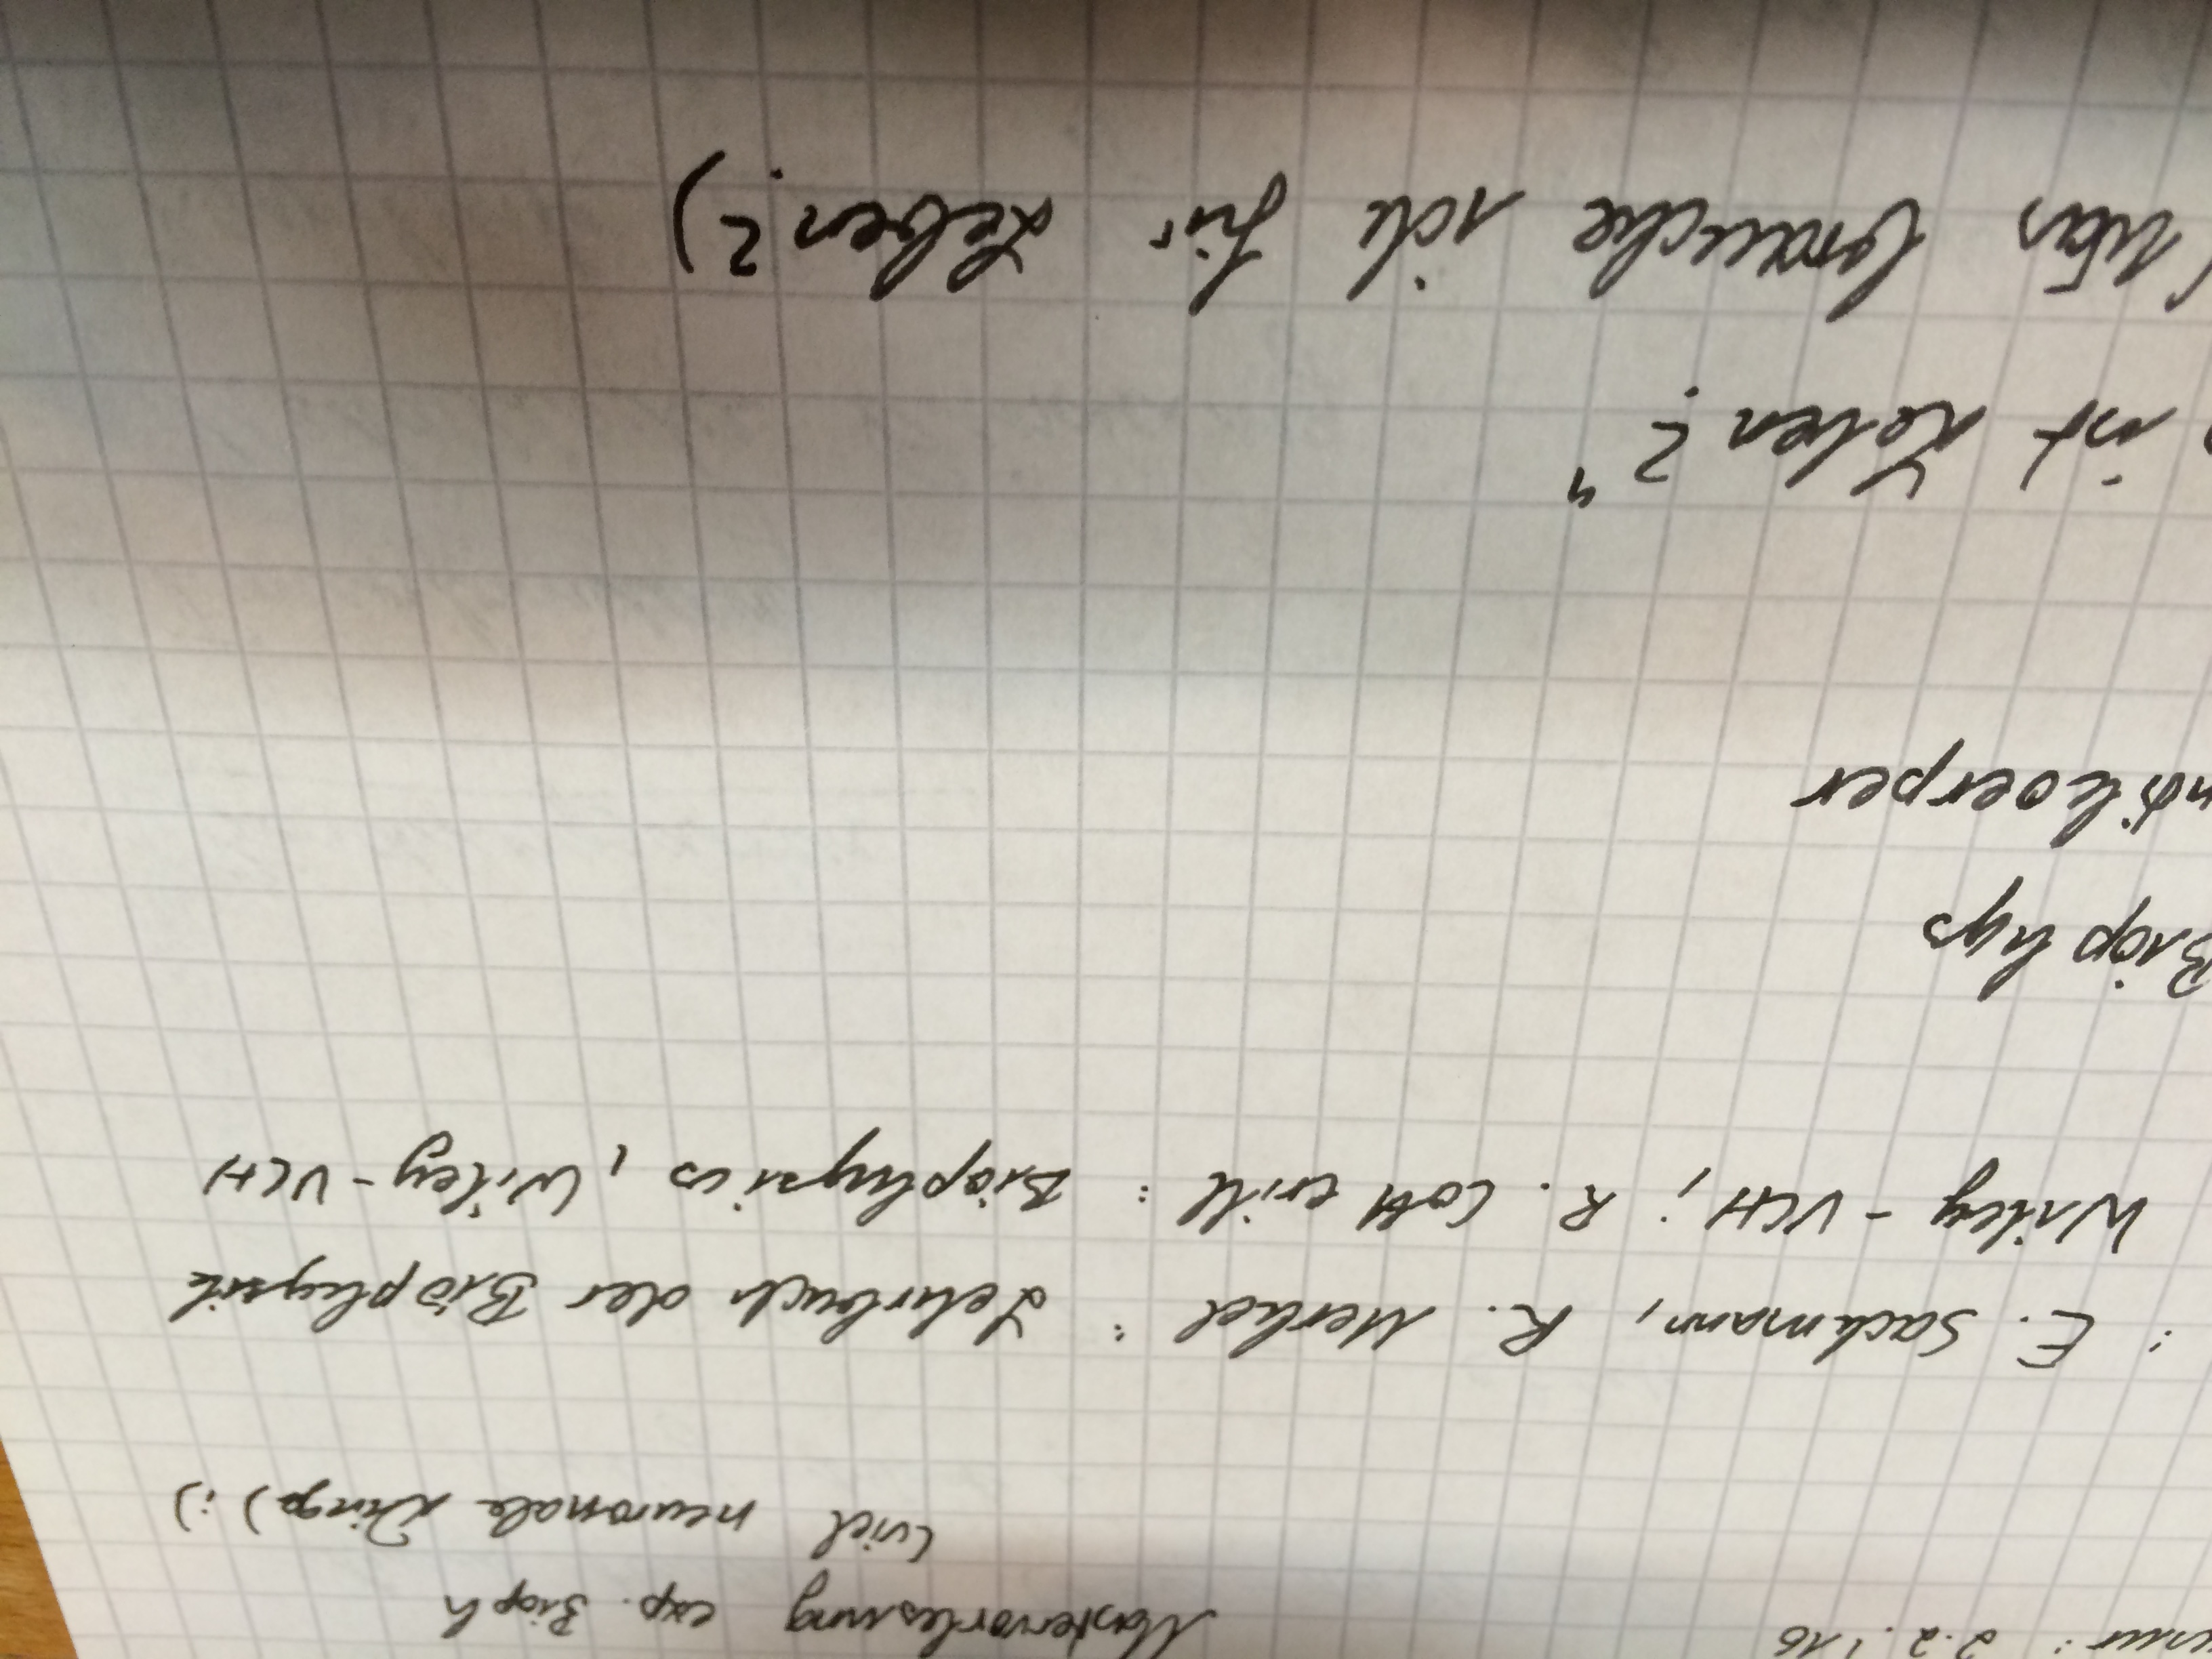 2.2.'16
Mastervorlesung exp. Bioph
(viel neuronale Dinge) :)
: E. Sackmann, R. Merkel : Lehrbuch der Biophysik
Wiley-VCH ; R. Cotterill : Biophysics, Wiley-VCH
Biophys
ndikoerper
ist Leben?"
(Was brauche ich für Leben?)